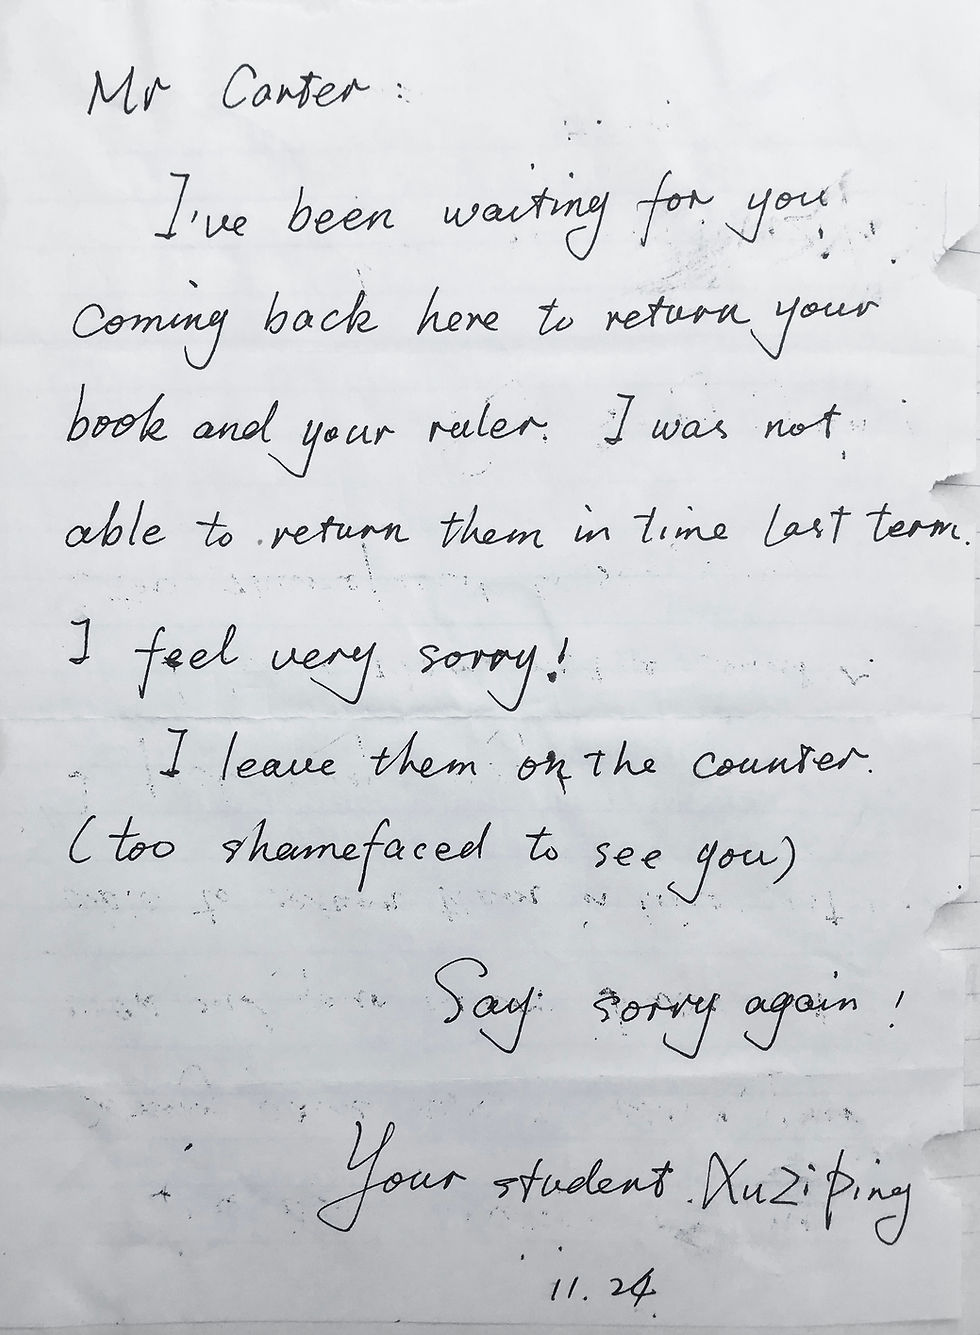 Mr Carter:
I've been waiting for you
coming back here to return your
book and your ruler. I was not
able to return them in time last term.
I feel very sorry!
I leave them on the counter.
(too shamefaced to see you)
Say sorry again!
Your student. XuZiping
11. 24